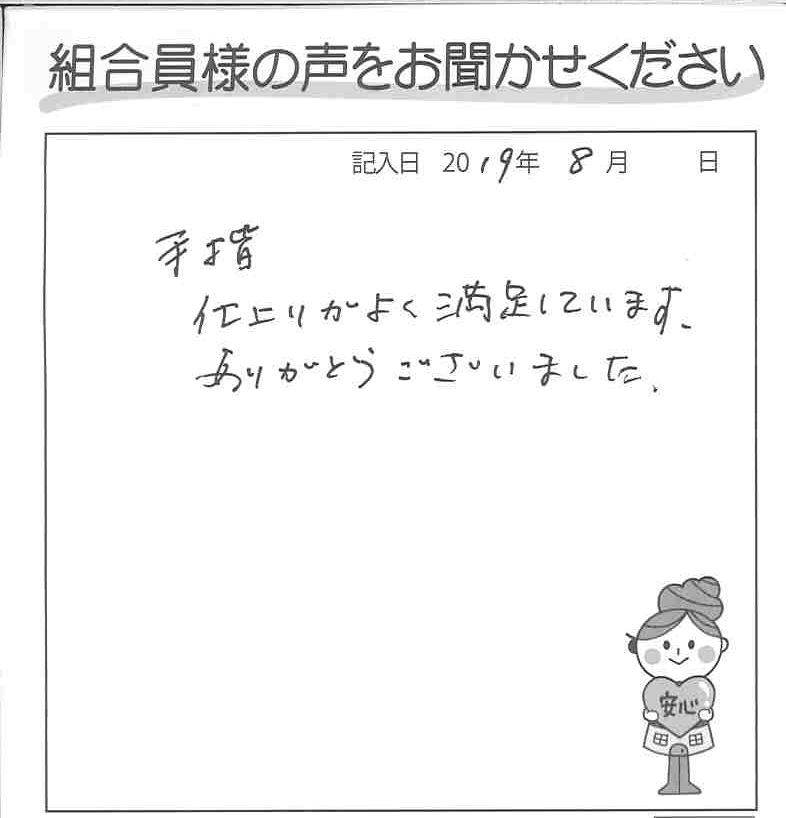 組合員様の声をお聞かせください
記入日 2019年 8月 日
手摺
仕上りがよく満足しています。
ありがとうございました。
安心